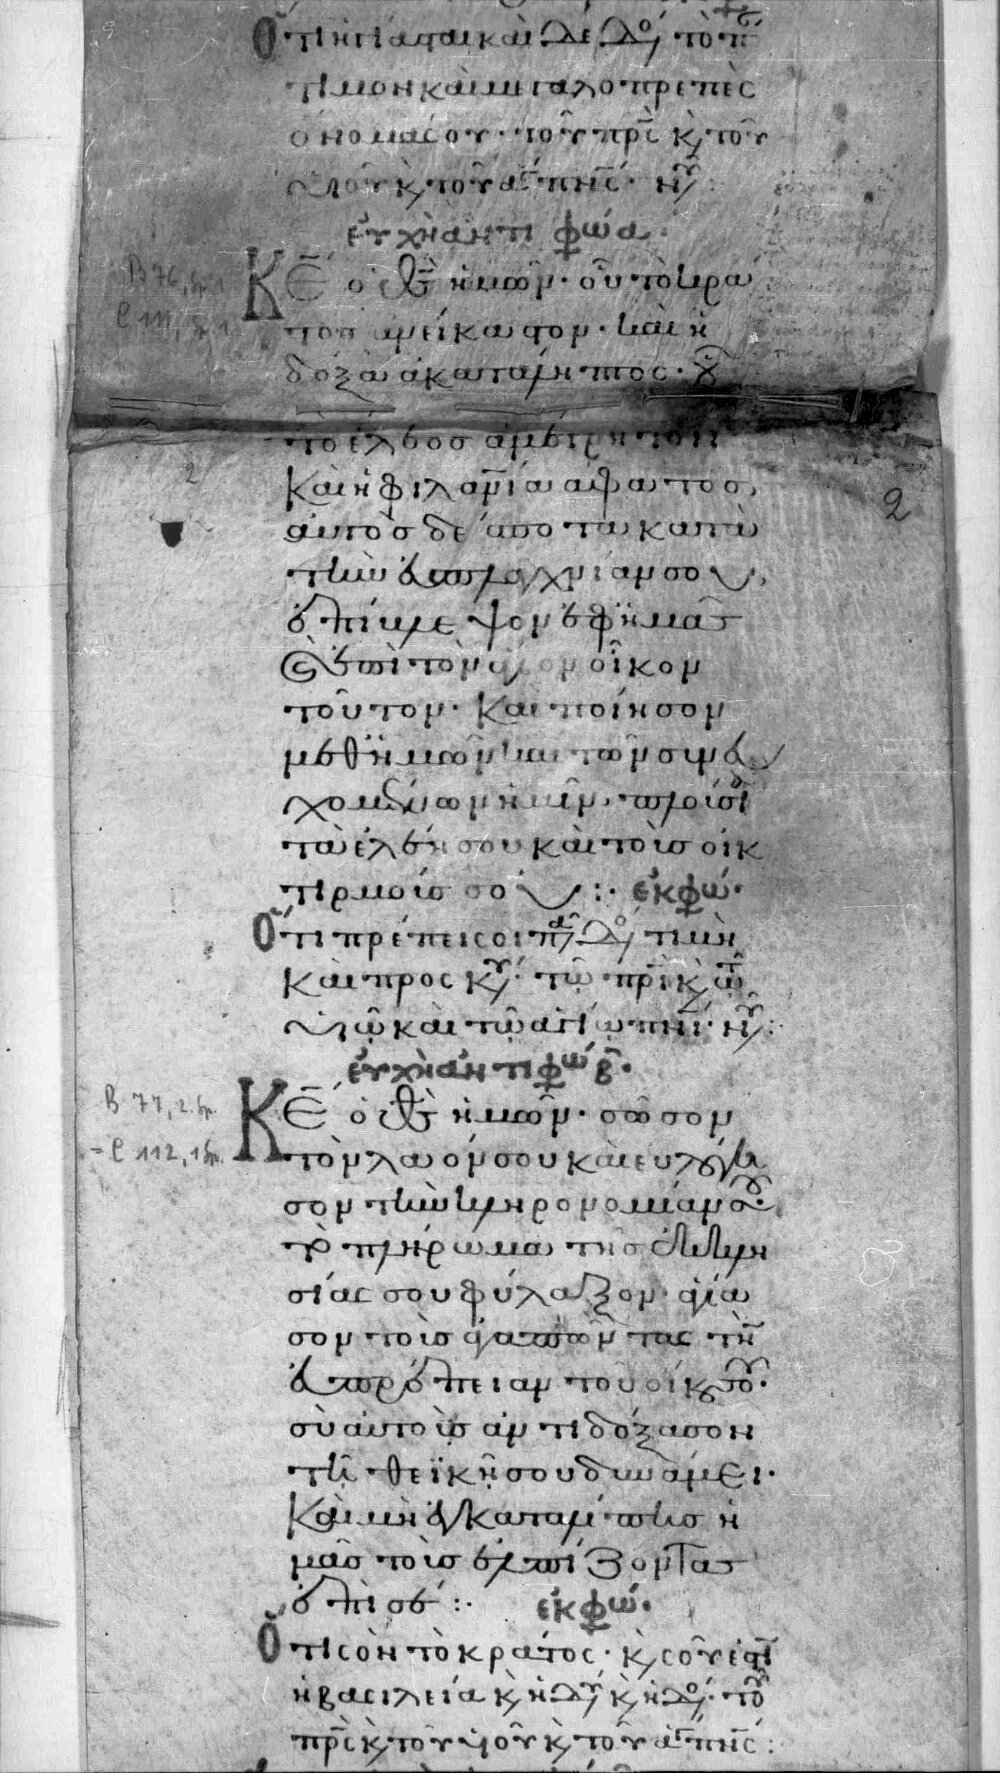 Ὅτι ηγίασται καὶ δεδό τὸ π
τιμον καὶ μεγαλοπρεπὲς
ὄνομά σου· τοῦ πρς κ τοῦ
υἱοῦ κ τοῦ ἁγ πνς· νῦ:
εὐχὴ ἀντιφώ α·
Κε ὁ θς ἡμῶν· οὗ τὸ κρά
τος ἀνείκαστον· καὶ ἡ
δόξα ἀκατάληπτος· οὗ
τὸ ἔλεος ἀμέτρητον
καὶ ἡ φιλανία ἄφατος,
αὐτὸς δέσποτα κατὰ
τὴν εὐσπλαγχνίαν σου,
ἐπίβλεψον ἐφ ἡμᾶς
καὶ ἐπὶ τὸν ἅγιον οἶκον
τοῦτον· καὶ ποίησον
μεθ ἡμῶν καὶ τῶν συνευ
χομένων ἡμῖν, πλούσι
τὰ ἐλέη σου καὶ τοὺς οἰκ
τιρμούς σου :· ἐκφώ·
Ὅτι πρέπει σοι πᾶ δό τιμὴ
καὶ προσκύ· τῷ πρὶ κ τῷ
υἱῷ καὶ τῷ ἁγίω πνι· νῦ:
εὐχὴ ἀντιφώ β·
Κε ὁ θς ἡμῶν· σῶσον
τὸν λαόν σου καὶ εὐλόγη
σον τὴν κληρονομίαν σου·
τὸ πλήρωμα τῆς ἐκκλη
σίας σου φύλαξον· ἁγία
σον τοὺς ἀγαπῶντας τὴν
εὐπρέπειαν τοῦ οἴκου σου·
σὺ αὐτοὺς ἀντιδόξασον
τῇ θεϊκῇ σου δυνάμει·
καὶ μὴ ἐγκαταλίπῃς ἡ
μᾶς τοὺς ἐλπίζοντας
ἐπὶ σέ :· ἐκφώ·
Ὅτι σὸν τὸ κράτος· κ σοῦ ἐστὶ
ἡ βασιλεία κ ἡ δύ κ ἡ δό· τοῦ
πρς κ τοῦ υἱοῦ κ τοῦ ἁγ πνς:
B 76, Sp. 1
C 111, Sp. 1
2
2
B 77, 2. Sp.
- C 112, 1 Sp.